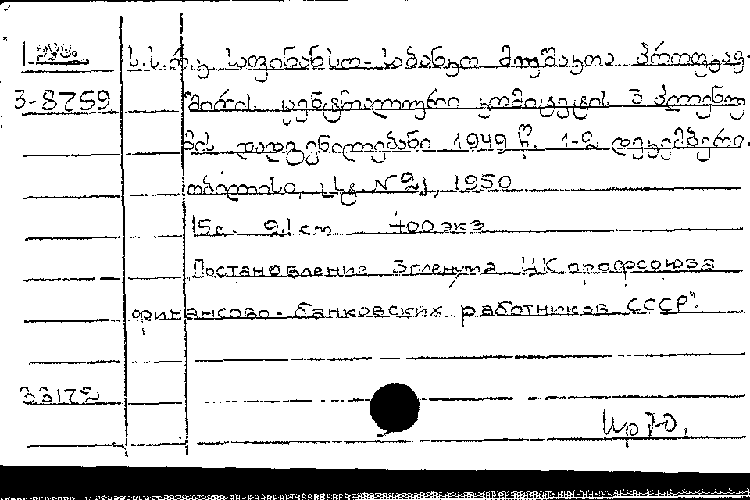 ს.ს.რ.კ. საფინანსო-საბანკო მუშაკთა პროფკავ-
3-8759 შირის ცენტრალური კომიტეტის 3 პლენუ
მის დადგენილებანი 1949 წ. 1-2 დეკემბერი.
თბილისი, სტ. N 21, 1950
15с. 21 cm 400 экз
Постановления 3 пленума ЦК профсоюза
финансово-банковских работников СССР".
33172